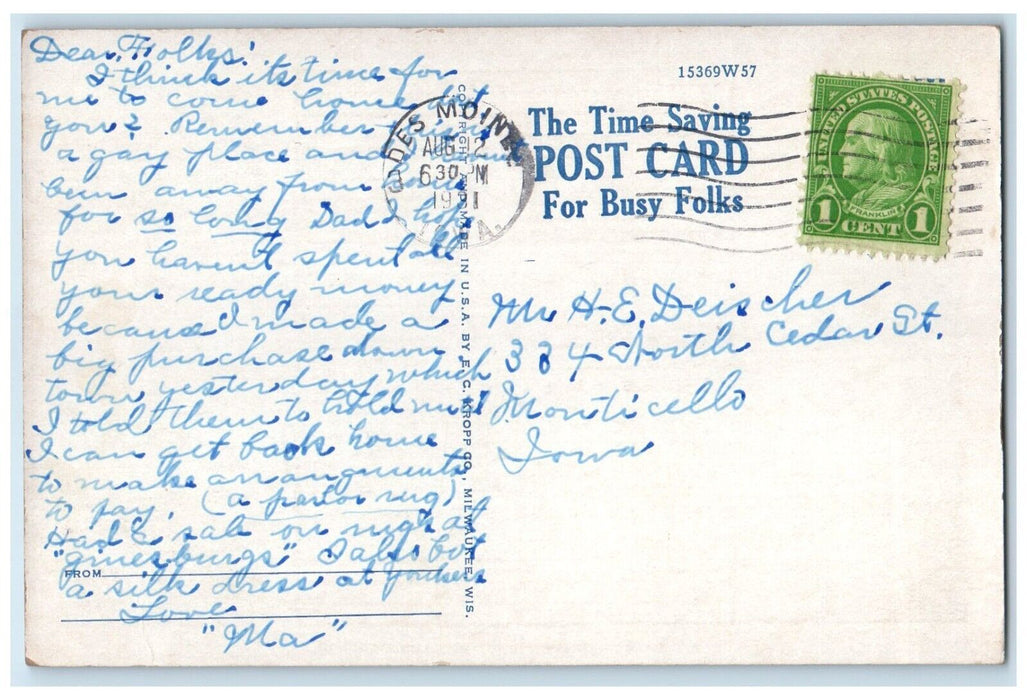 Dear Folks!
I think its time for
me to come home, don't
you? Remember
a gay place and
been away from home
for so long Dad I hope
you haven't spent all
your ready money
because I made a
big purchase down
town yesterday which
I told them to hold until
I can get back home
to make arrangments
to pay. (a parlor rug)
Had a sale on rugs at
"ginesburgs" I also bot
a silk dress at younkers
Love
"Ma"
FROM
COPYRIGHT AND MADE IN U.S.A. BY E. C. KROPP CO., MILWAUKEE, WIS.
DES MOINES
AUG 12
6 30 PM
IOWA.
15369W57
The Time Saving
POST CARD
For Busy Folks
UNITED STATES POSTAGE
FRANKLIN
1 CENT 1
Mr H.E. Deischer
334 North Cedar St.
Monticello
Iowa